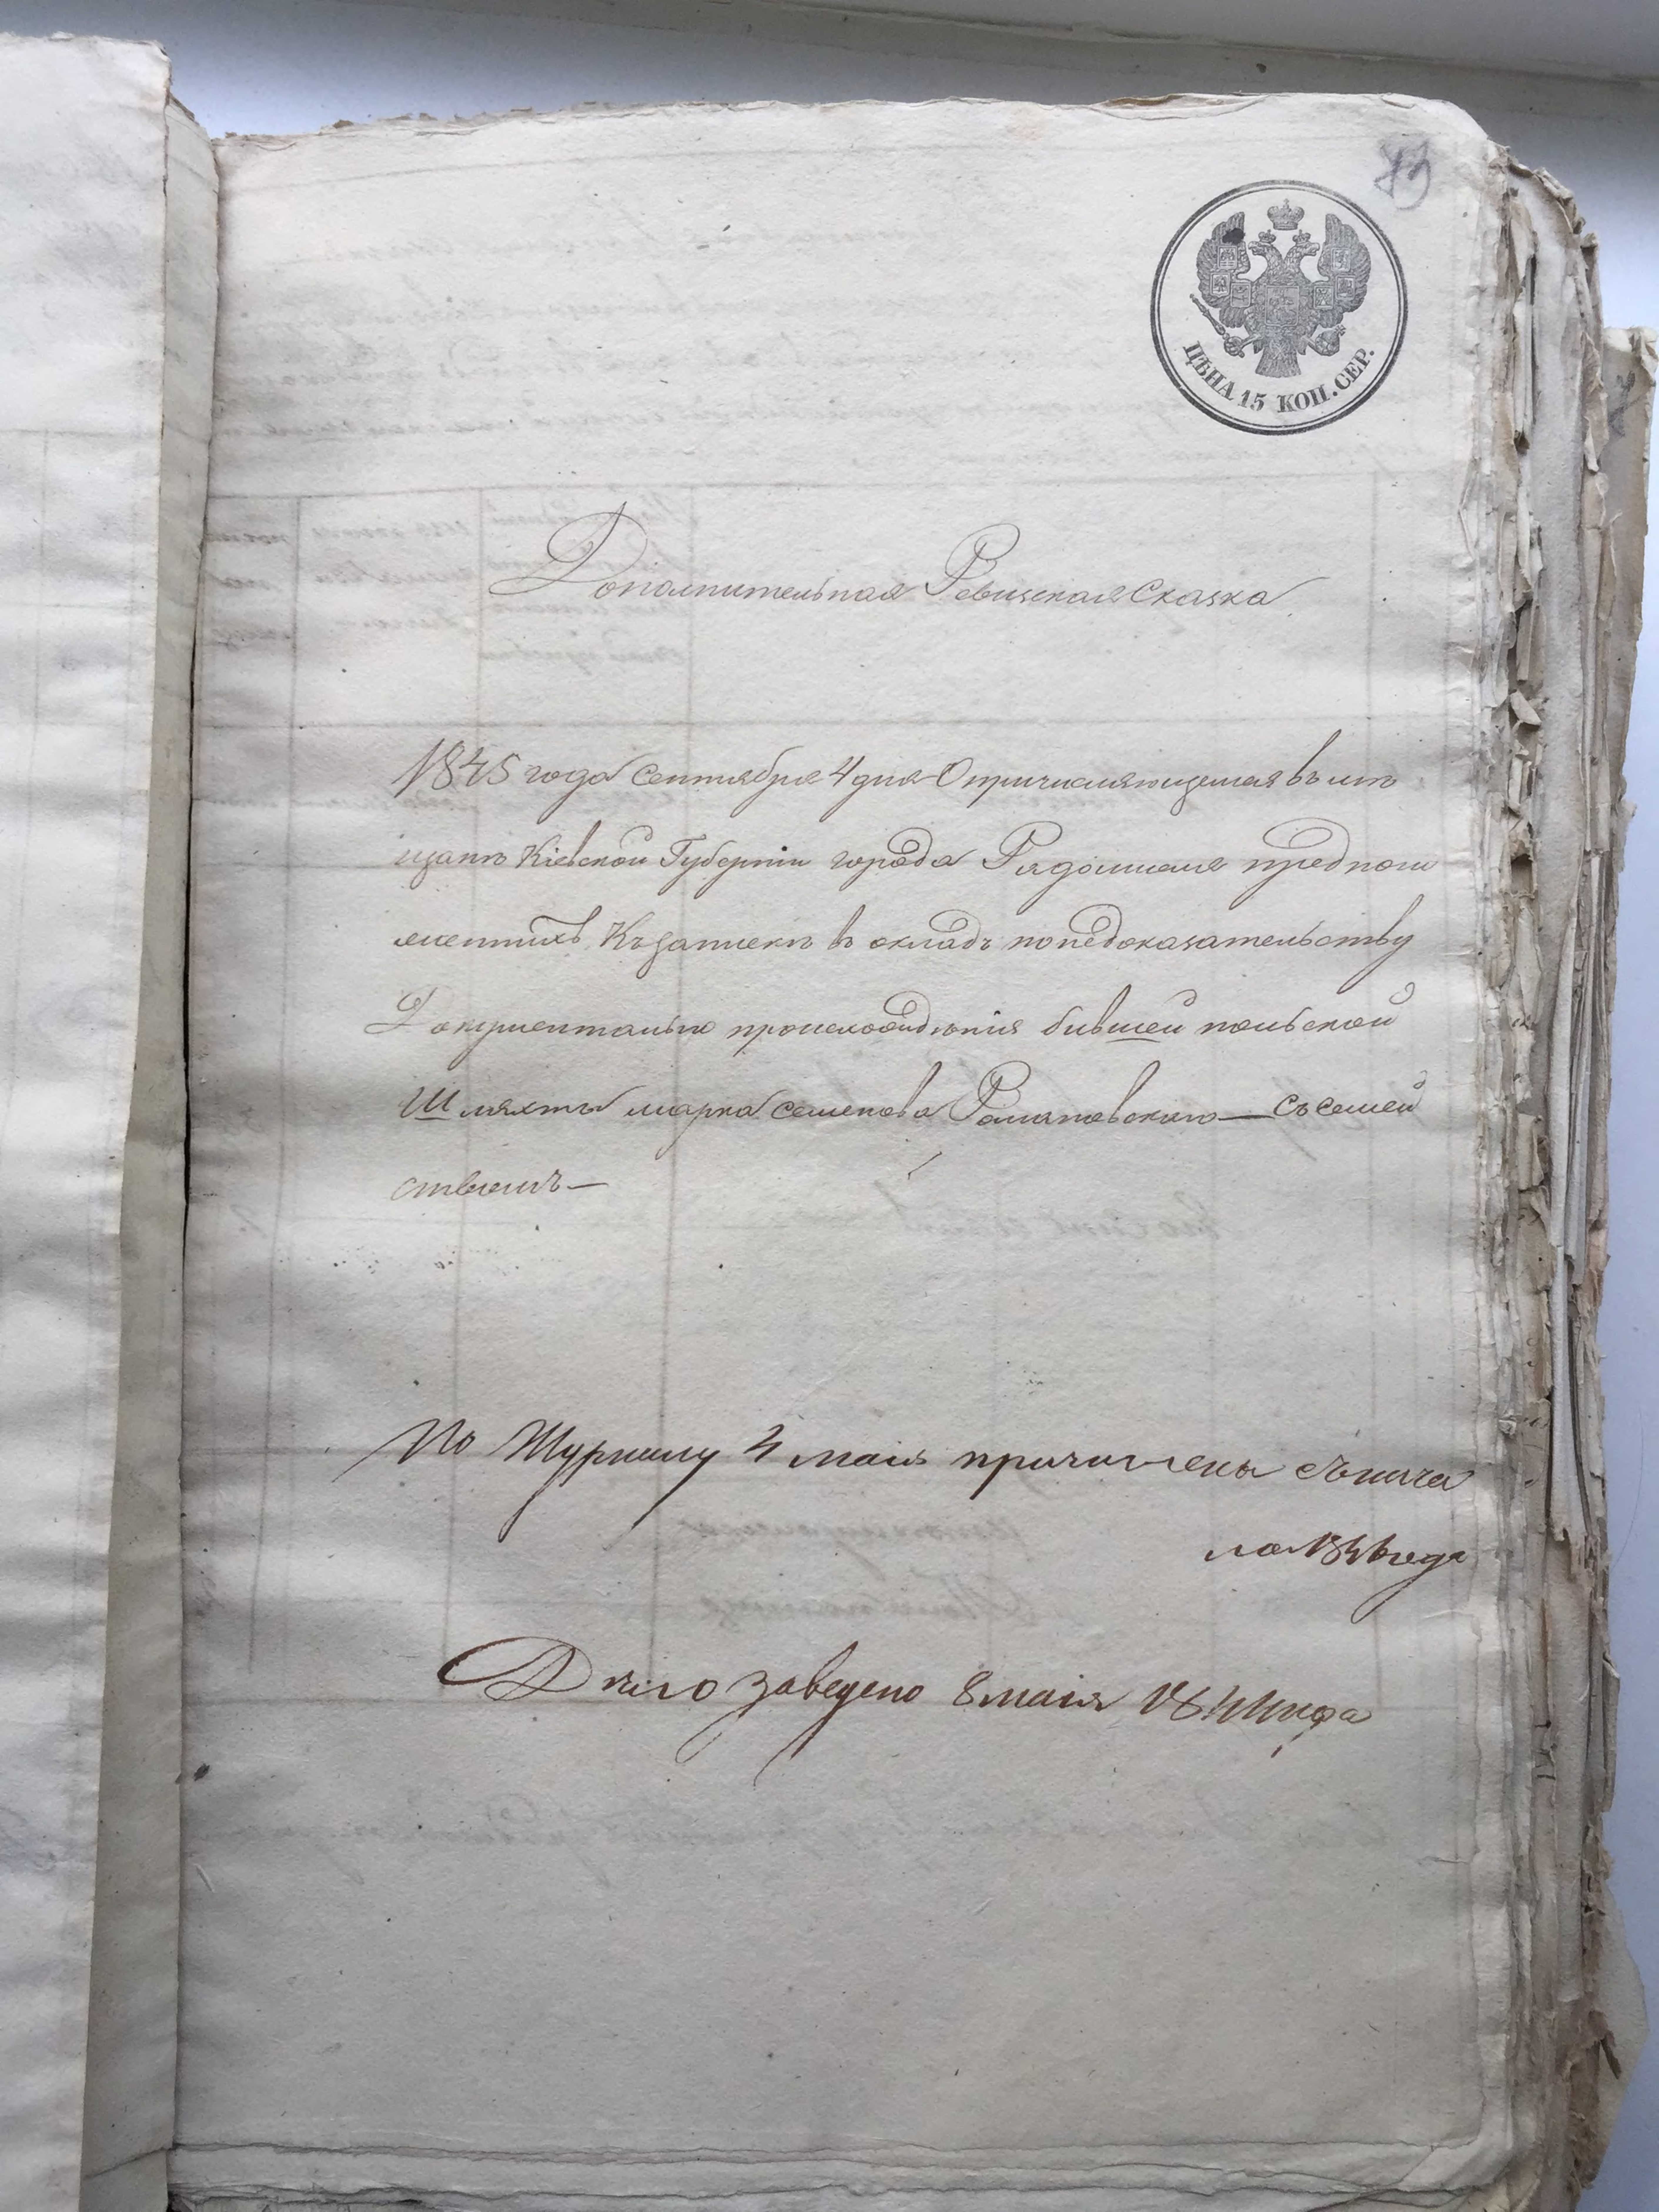 ЦѢНА 15 КОП. СЕР.
Дополнительная Ревизская Сказка
1845 года Сентября 4 дня О причисляющемся въ мѣ
щане Кіевской Губерніи города Радомысля предпол
Къ запискѣ въ окладъ по недоказательству
Документально происхожденія бывшей польской
Шляхты марка семенова Романовского — съ семей
ствомъ —
По Журналу 4 маія причислены съ нача
ла года
Дѣло заведено 8 маія года